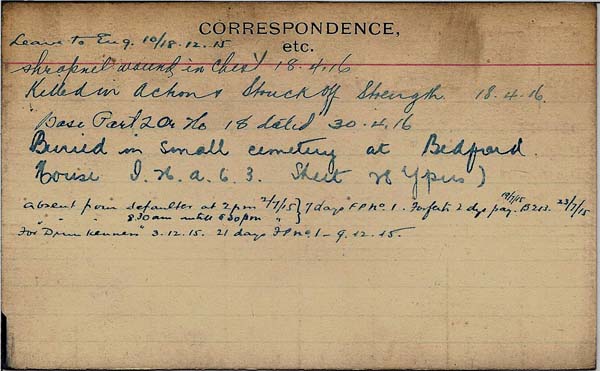 CORRESPONDENCE,
etc.
Leave to Eng. 10/18.12.15
Shrapnel wound in Chest 18.4.16
Killed in Action & Struck off Strength 18.4.16.
Base Part 2 Or No 18 dated 30.4.16
Buried in small cemetery at Bedford.
House I. 26. a. 6. 3. Sheet 28 Ypres)
absent from defaulter at 2 pm 2/7/15 } 7 days F P No. 1. Forfeits 2 dys pay. B213. 23/7/15
" " " 8.30am until 6.30pm "
For Drunkenness 3.12.15. 21 days F P No 1 - 9.12.15.